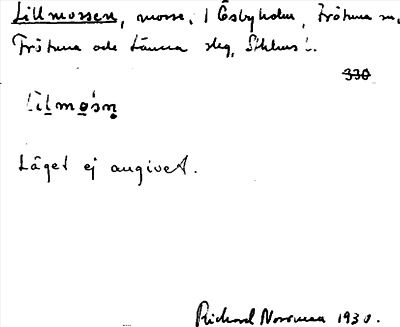 Lillmossen, mosse, i Ösbyholm, Frötuna sn,
Frötuna och Länna slg, Sthlms l.
330
Läget ej angivet.
Richard Norrman 1930.